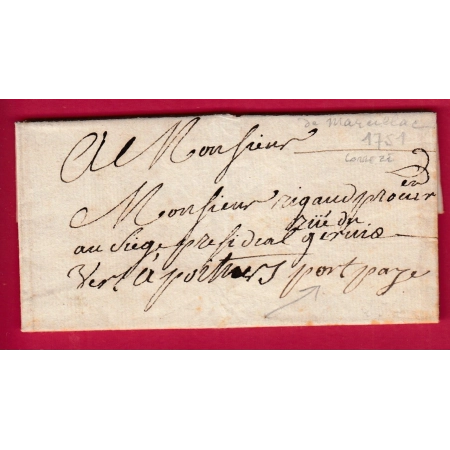 De Marcillac
1751
Correze
A Monsieur
en
Monsieur rigaud procur
rüe du
au Siege presidial gervis
vert à poitiers port paye